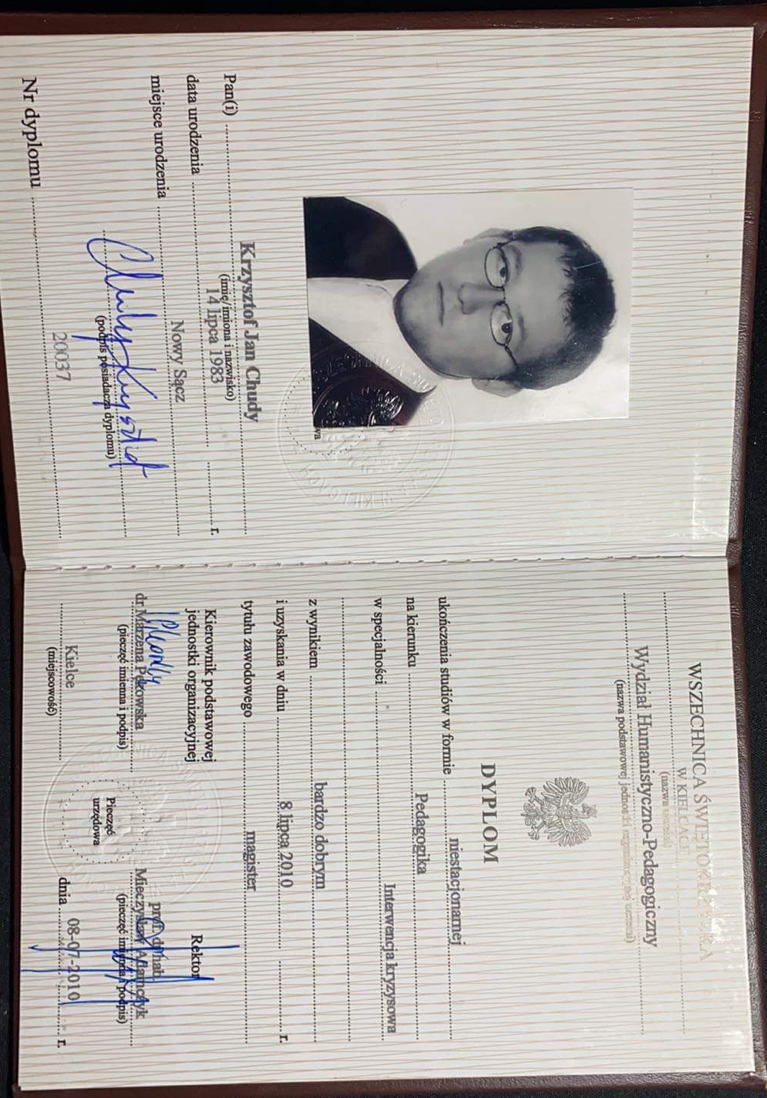 Pan(i)
Krzysztof Jan Chudy
(imię/imiona i nazwisko)
data urodzenia 14 lipca 1983 r.
miejsce urodzenia Nowy Sącz
Chudy Krzysztof
(podpis posiadacza dyplomu)
Nr dyplomu 20037
WSZECHNICA ŚWIĘTOKRZYSKA
W KIELCACH
(nazwa uczelni)
Wydział Humanistyczno-Pedagogiczny
(nazwa podstawowej jednostki organizacyjnej uczelni)
DYPLOM
ukończenia studiów w formie niestacjonarnej
na kierunku Pedagogika
w specjalności Interwencja kryzysowa
z wynikiem bardzo dobrym
i uzyskania w dniu 8 lipca 2010 r.
tytułu zawodowego magister
Kierownik podstawowej
jednostki organizacyjnej
dr Marzena
(pieczęć imienna i podpis)
Rektor
prof. dr hab.
Mieczysław Adamczyk
(pieczęć imienna i podpis)
Pieczęć
urzędowa
Kielce dnia 08-07-2010 r.
(miejscowość)